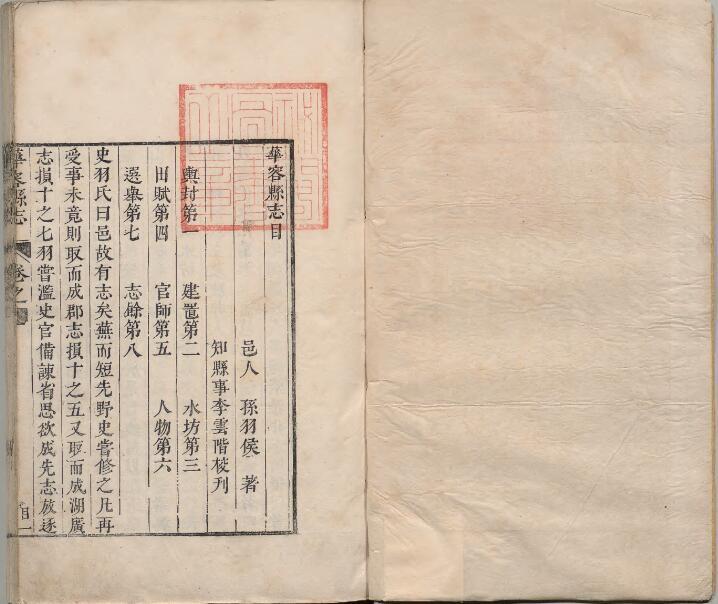 華容縣志目
邑人 孫羽侯 著
知縣事李雲階校刋
輿封第一 建置第二 水坊第三
田賦第四 官師第五 人物第六
選舉第七 志餘第八
史羽氏曰邑故有志矣蕪而短先野史嘗修之凡再
受事未竟則取而成郡志損十之五又取而成湖廣
志損十之七羽嘗濫史官備諫省思欲成先志放逐
華容縣志 卷之一 目一